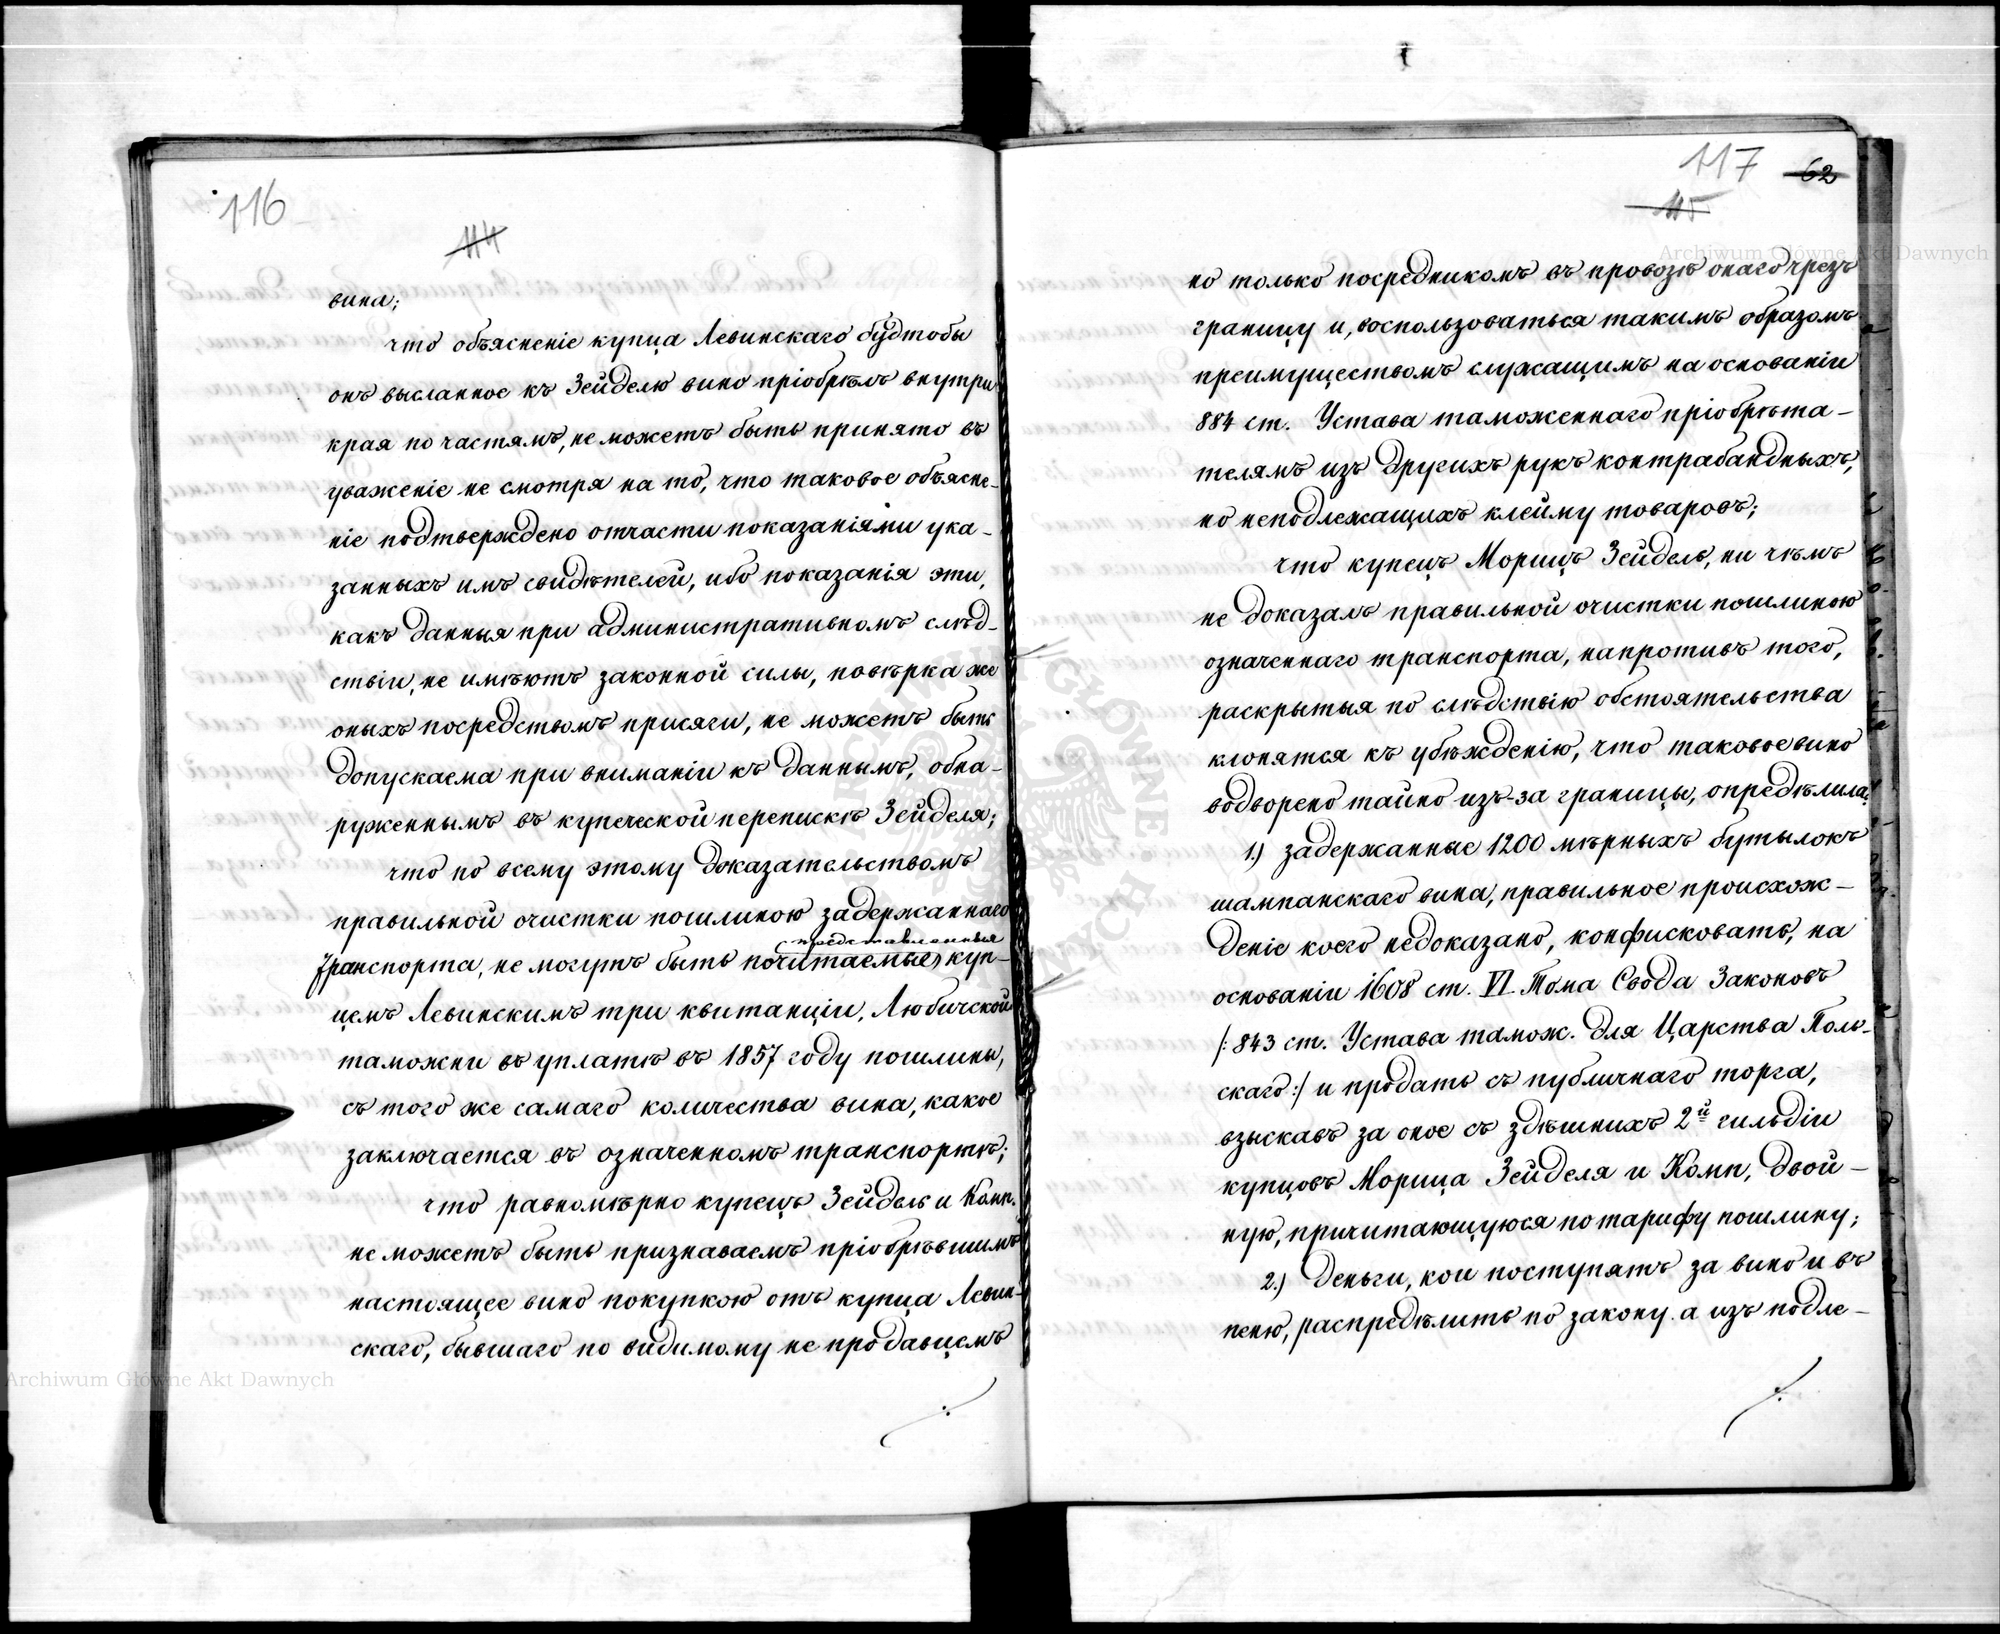 116
114
вина;
что объясненіе купца Левинскаго будтобы
онъ высланное къ Зейделю вино пріобрѣлъ внутри
края по частямъ, не можетъ быть принято въ
уваженіе не смотря на то, что таковое объясне-
ніе подтверждено отчасти показаніями ука-
занныхъ имъ свидѣтелей, ибо показанія эти,
какъ данныя при административномъ слѣд-
ствіи, не имѣютъ законной силы, повѣрка же
оныхъ посредствомъ присяги, не можетъ быть
допускаема при вниманіи къ даннымъ, обна-
руженнымъ въ купеческой перепискѣ Зейделя;
что по всему этому доказательствомъ
правильной очистки пошлиною задержаннаго
представленныя
транспорта, не могутъ быть почитаемые) куп-
цемъ Левинскимъ три квитанціи, Любичской
таможни въ уплатѣ въ 1857 году пошлины,
съ того же самаго количества вина, какое
заключается въ означенномъ транспортѣ;
что равномѣрно купецъ Зейдель и Комп.
не можетъ быть признаваемъ пріобрѣвшимъ
настоящее вино покупкою отъ купца Левин-
скаго, бывшаго по видимому не продавцемъ
117 62
115
но только посредникомъ въ провозѣ онаго чрезъ
границу и, воспользоваться такимъ образомъ
преимуществомъ служащимъ на основаніи
884 ст. Устава таможеннаго пріобрѣта-
телямъ изъ другихъ рукъ контрабандныхъ,
но неподлежащихъ клейму товаровъ;
что купецъ Морицъ Зейдель, ни чѣмъ
не доказалъ правильной очистки пошлиною
означеннаго транспорта, напротивъ того,
раскрытыя по слѣдствію обстоятельства
клонятся къ убѣжденію, что таковое вино
водворено тайно изъ-за границы, опредѣлила:
1.) задержанные 1200 мѣрныхъ бутылокъ
шампанскаго вина, правильное происхож-
деніе коего недоказано, конфисковать, на
основаніи 1608 ст. VI. Тома Свода Законовъ
/: 843 ст. Устава тамож. для Царства Поль-
скаго :/ и продать съ публичнаго торга,
взыскавъ за оное съ здѣшнихъ 2й гильдіи
купцовъ Морица Зейделя и Комп, двой-
ную, причитающуюся по тарифу пошлину;
2.) Деньги, кои поступятъ за вино и въ
пеню, распредѣлить по закону. а изъ подле-
Archiwum Główne Akt Dawnych
Archiwum Główne Akt Dawnych